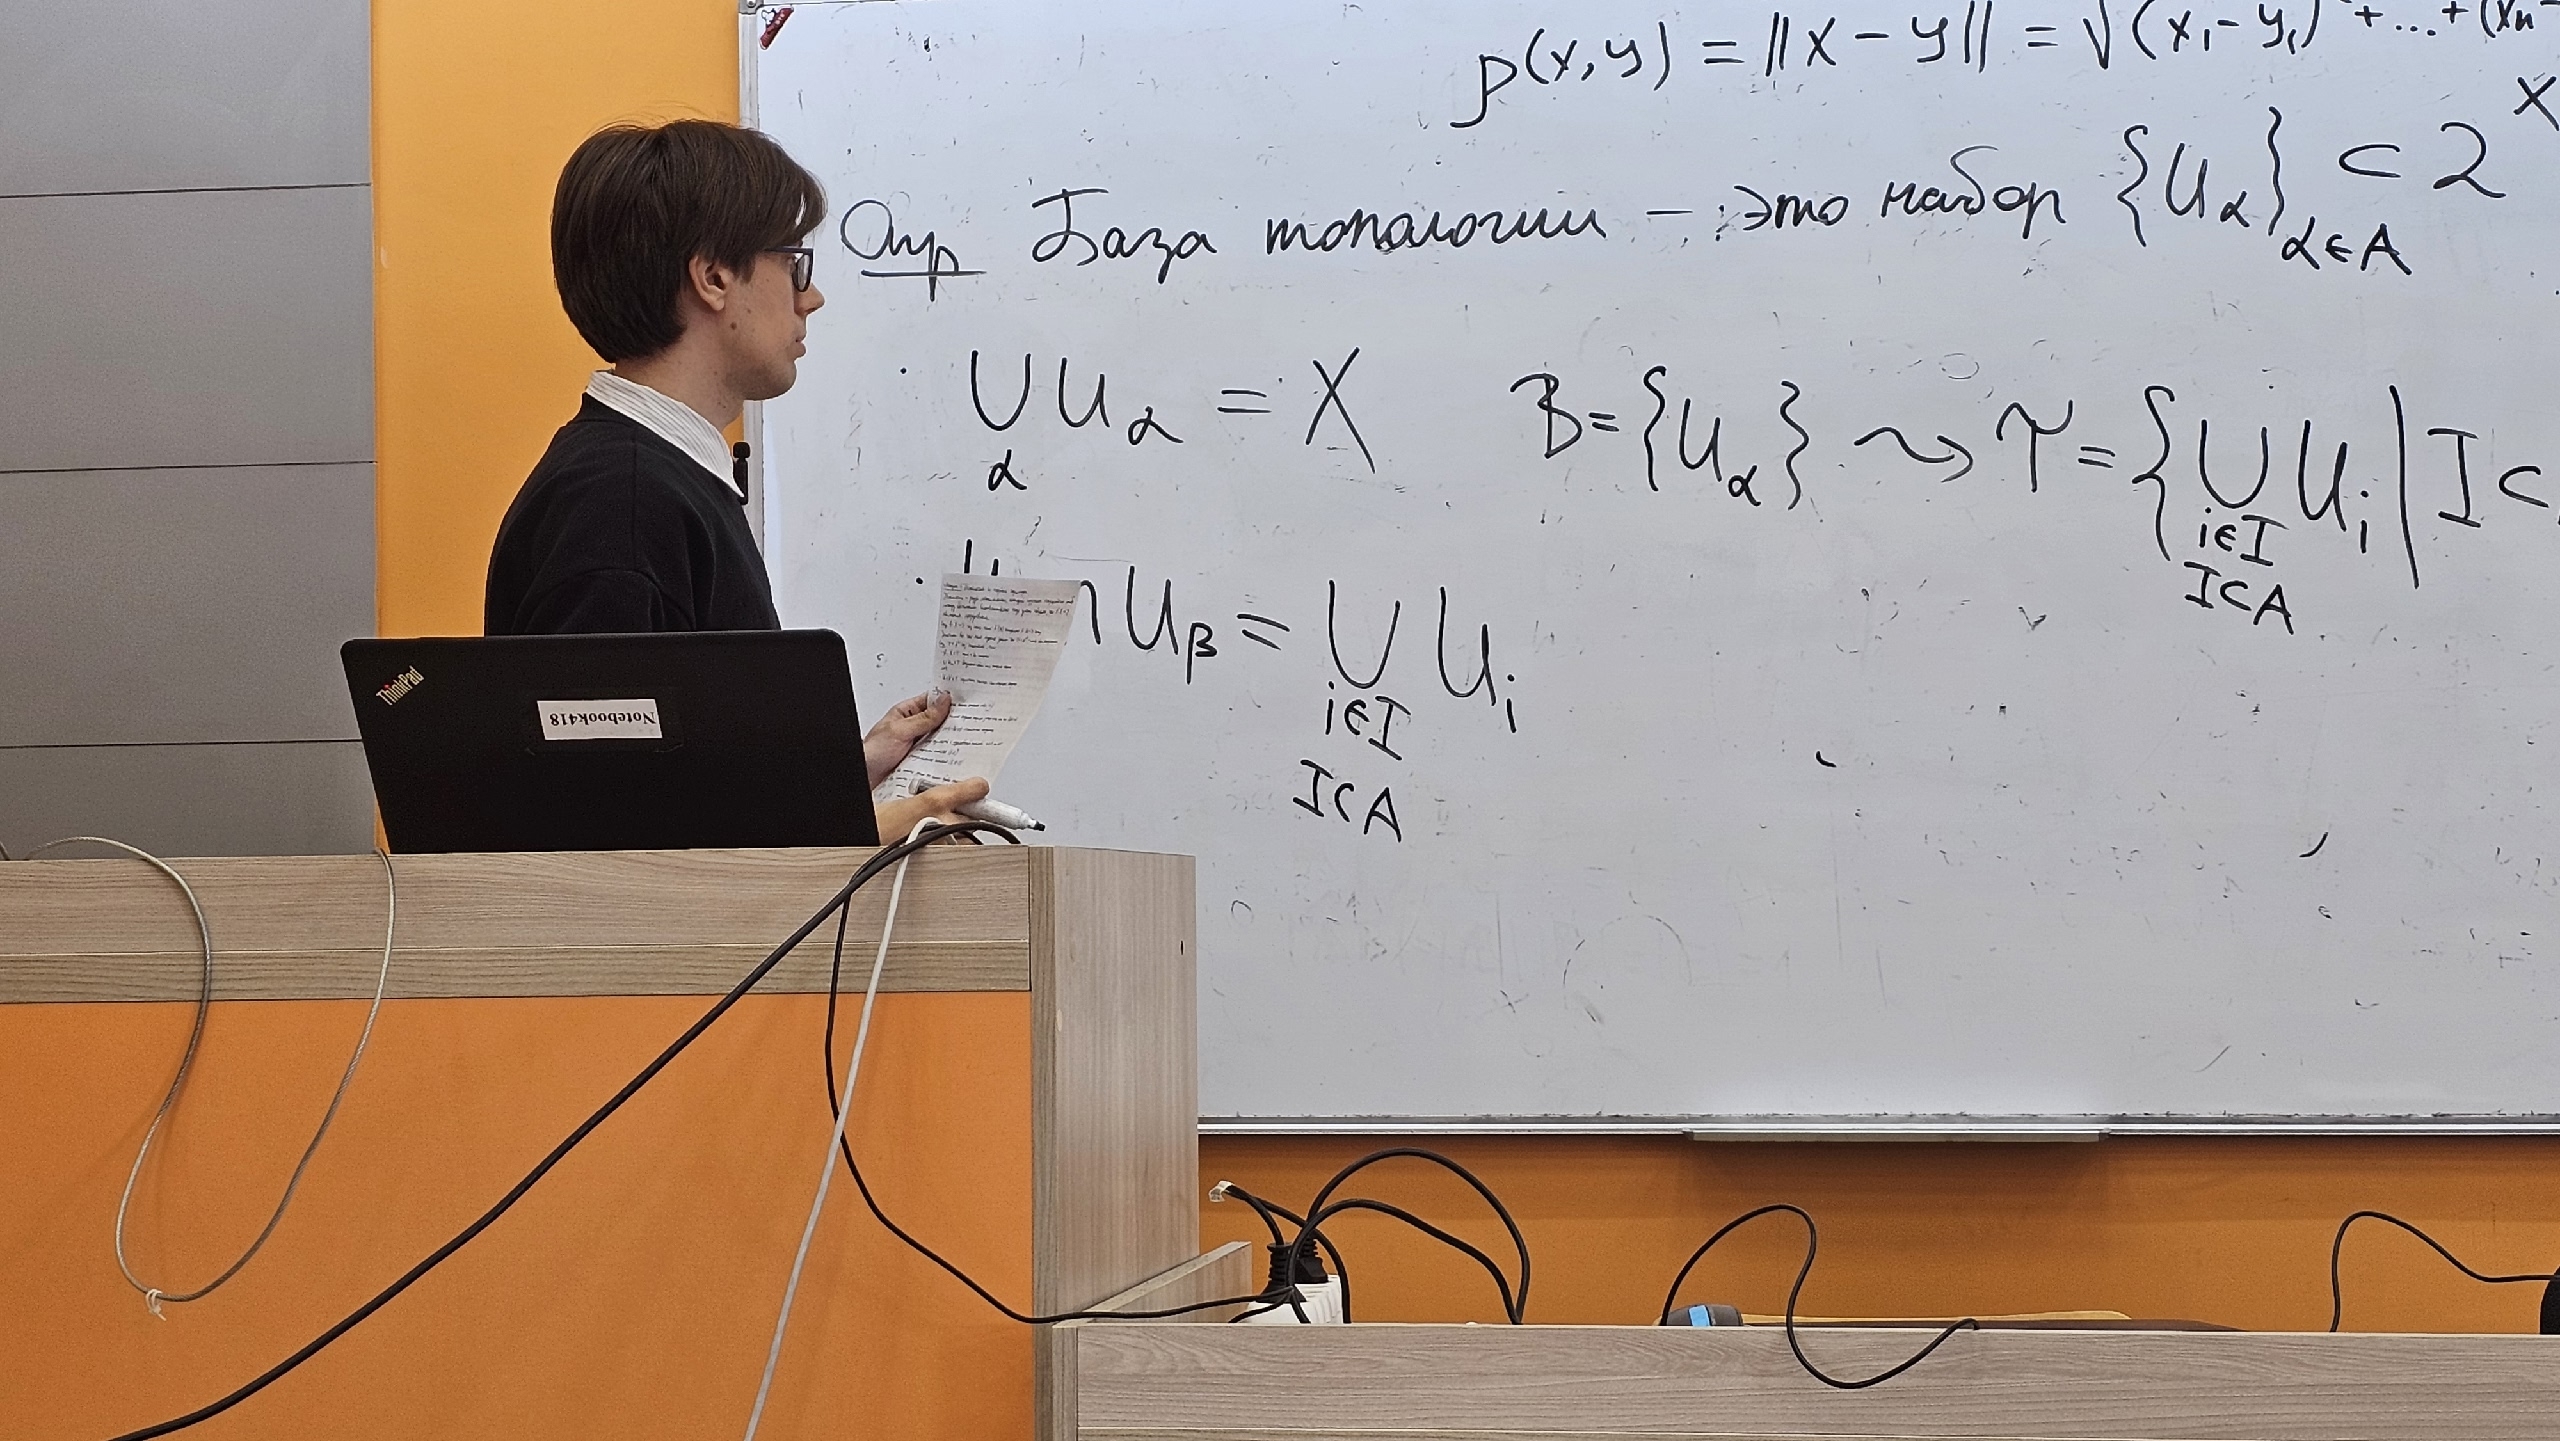 ρ(x,y) = ||x − y|| = √(x₁ − y₁) + ... + (xₙ
Опр База топологии – это набор {U_α}_{α∈A} ⊂ 2^X
· ⋃_α U_α = X   B = {U_α} ⇝ τ = {⋃_{i∈I I⊂A} U_i | I ⊂
· ∩ U_β = ⋃_{i∈I I⊂A} U_i
ThinkPad
Notebook418